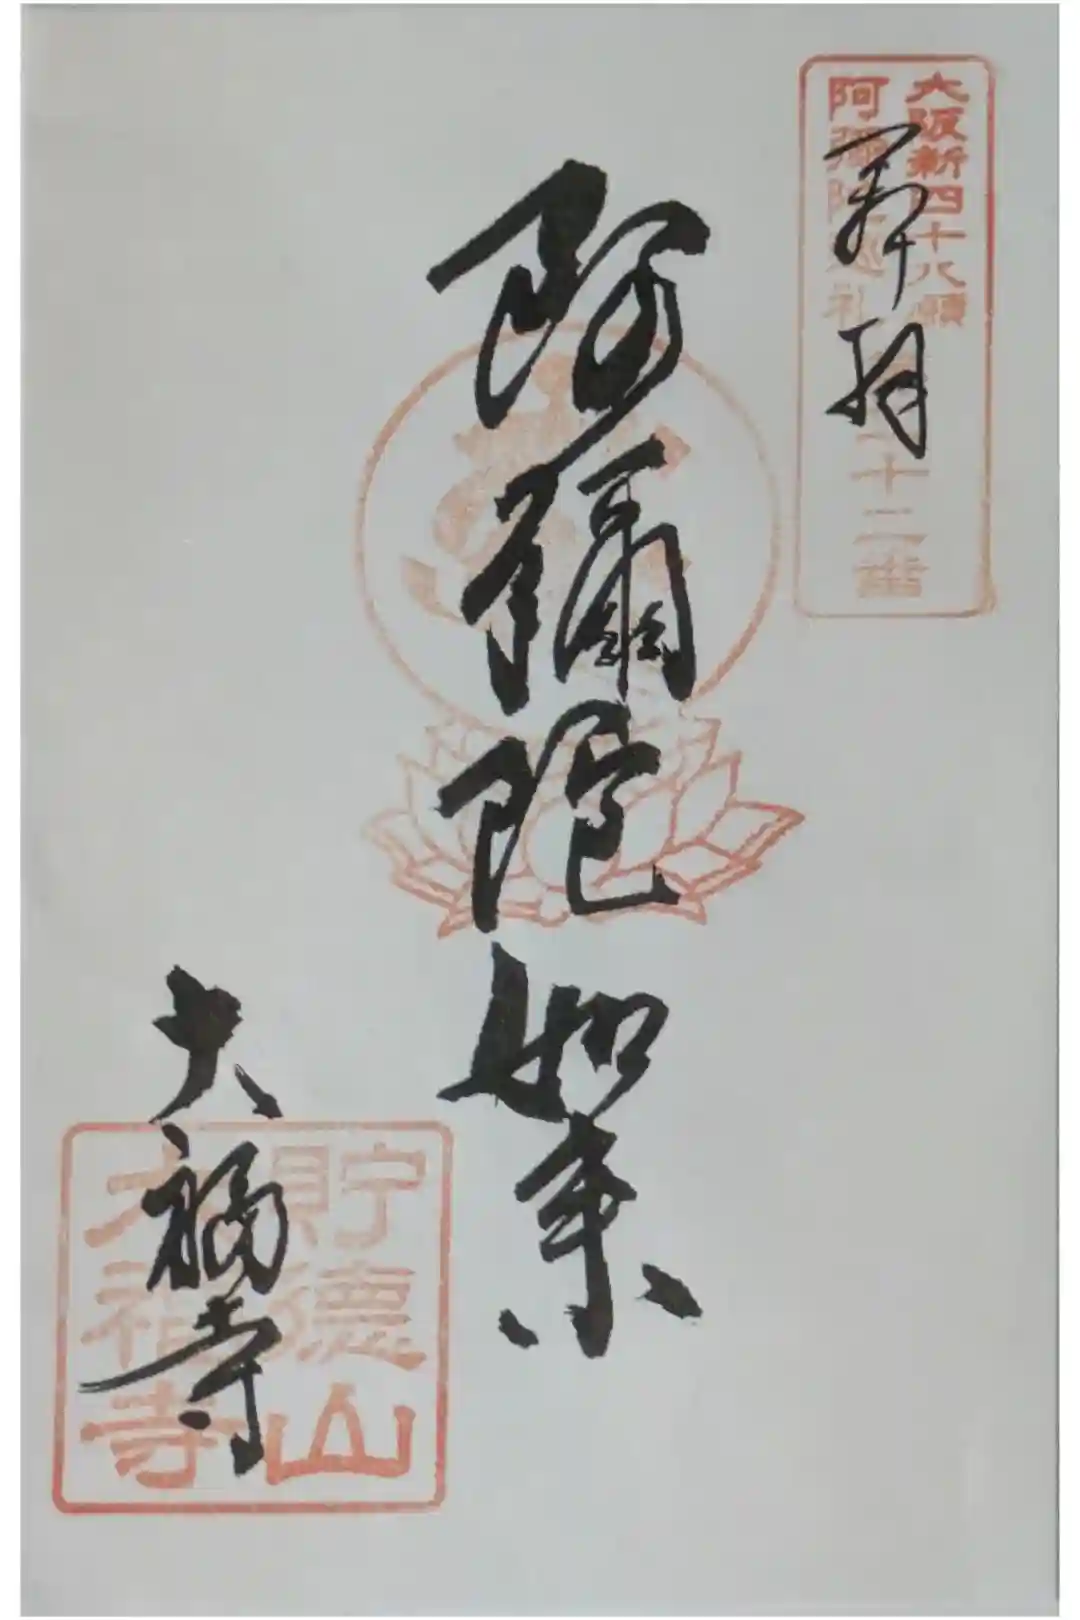 大阪新四十八願
阿彌陀巡礼
十二番
奉拜
阿彌陀如来
大福寺
貯徳山
大福寺